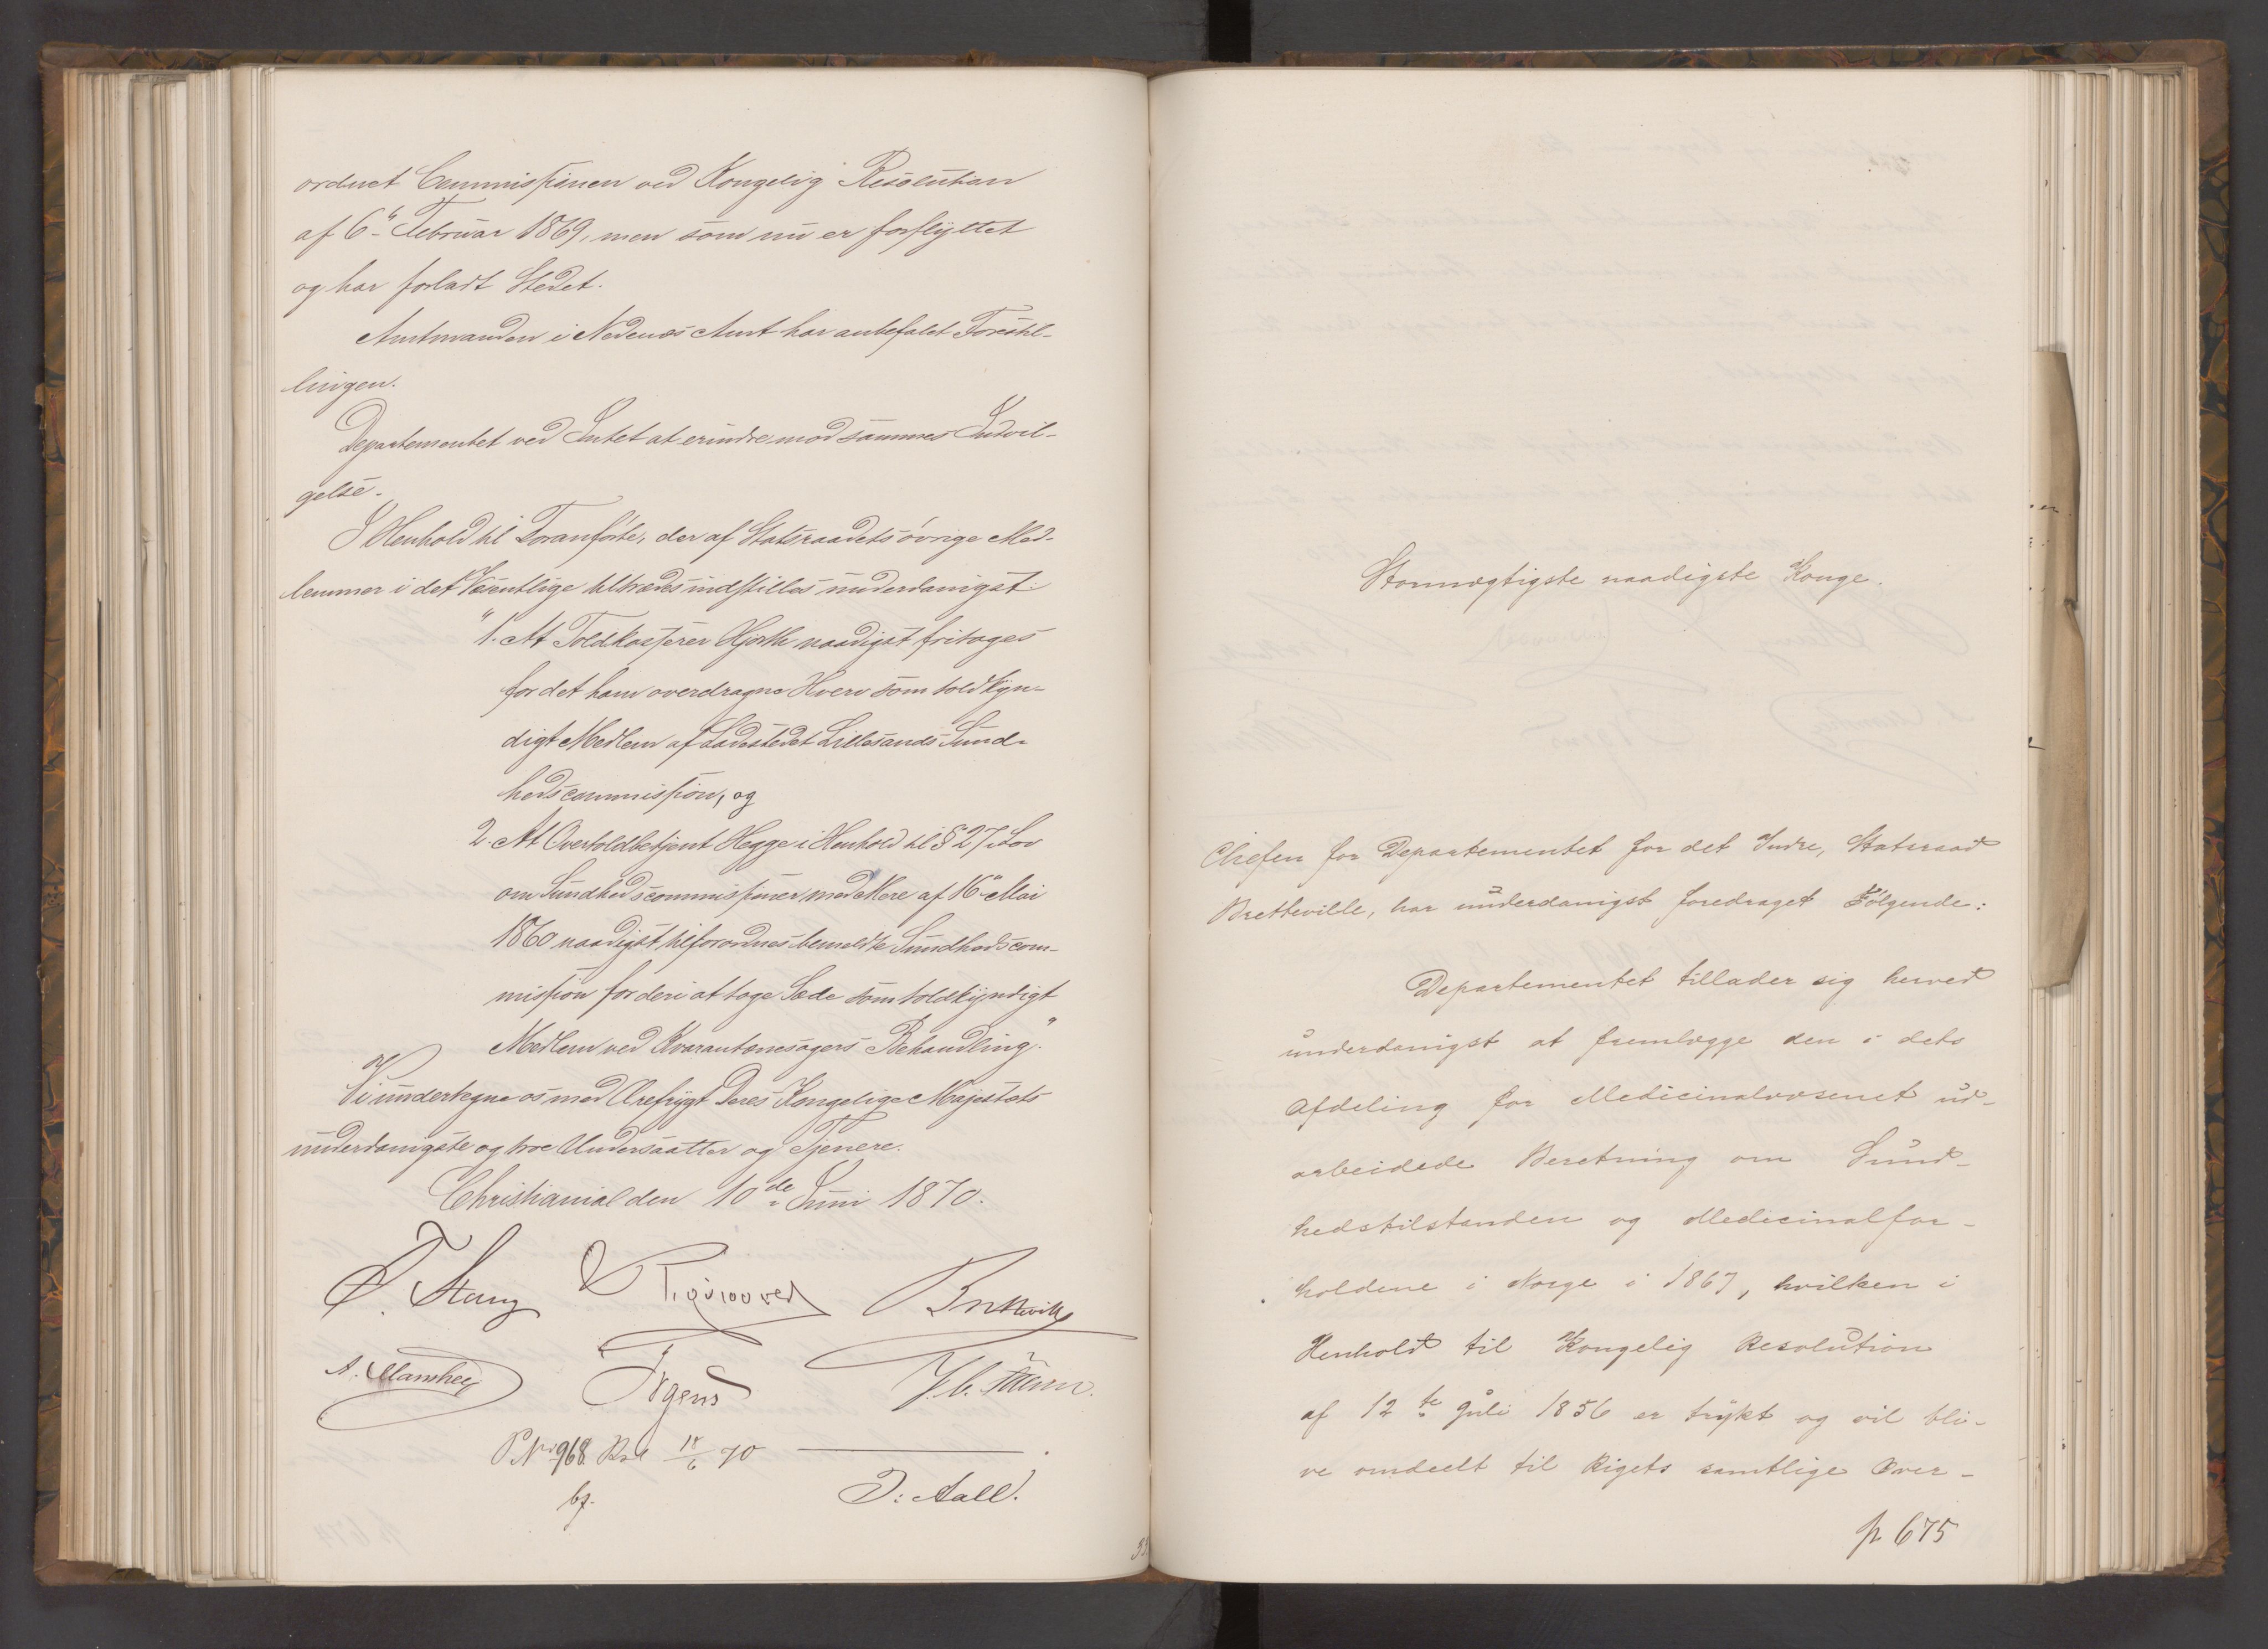 ordnet Commissionen ved Kongelig Resolution
af 6te Februar 1869, men som nu er forflyttet
og har forladt Stedet.
Amtmanden i Nedenæs Amt har anbefalet Forestil-
lingen.
Departementet ved Intet at erindre mod sammes Indvil-
gelse.
I Henhold til Foranførte, der af Statsraadets øvrige Med-
lemmer i det Væsentlige tiltrædes indstilles underdanigst:
"1. At Toldkasserer Hjorth naadigst fritages
for det ham overdragne Hverv som toldkyn-
digt Medlem af Ladestedet Lillesands Sund-
hedscommission, og
2. At Overtoldbetjent Hegge i Henhold til § 27 i Lov
om Sundhedscommissioner med Mere af 16de Mai
1860 naadigst tilforordnes bemeldte Sundhedscom-
mission for deri at tage Sæde som toldkyndigt
Medlem ved Kvarantænesagers Behandling."
Vi undertegne os med Ærefrygt Deres Kongelige Majestæts
underdanigste og troe Undersaatter og Tjenere.
Christiania den 10de Juni 1870.
F. Stang Bretteville
A. Manthey Irgens J. C. Falsen.
P. No 968. Res 18/6 70
J. Aall.
Stormægtigste naadigste Konge.
Chefen for Departementet for det Indre, Statsraad
Bretteville, har underdanigst foredraget Følgende:
Departementet tillader sig herved
underdanigst at fremlægge den i dets
Afdeling for Medicinalvæsenet ud-
arbeidede Beretning om Sund-
hedstilstanden og Medicinalfor-
holdene i Norge i 1867, hvilken i
Henhold til Kongelig Resolution
af 12te Juli 1856 er trykt og vil bli-
ve omdeelt til Rigets samtlige Over-
p 675